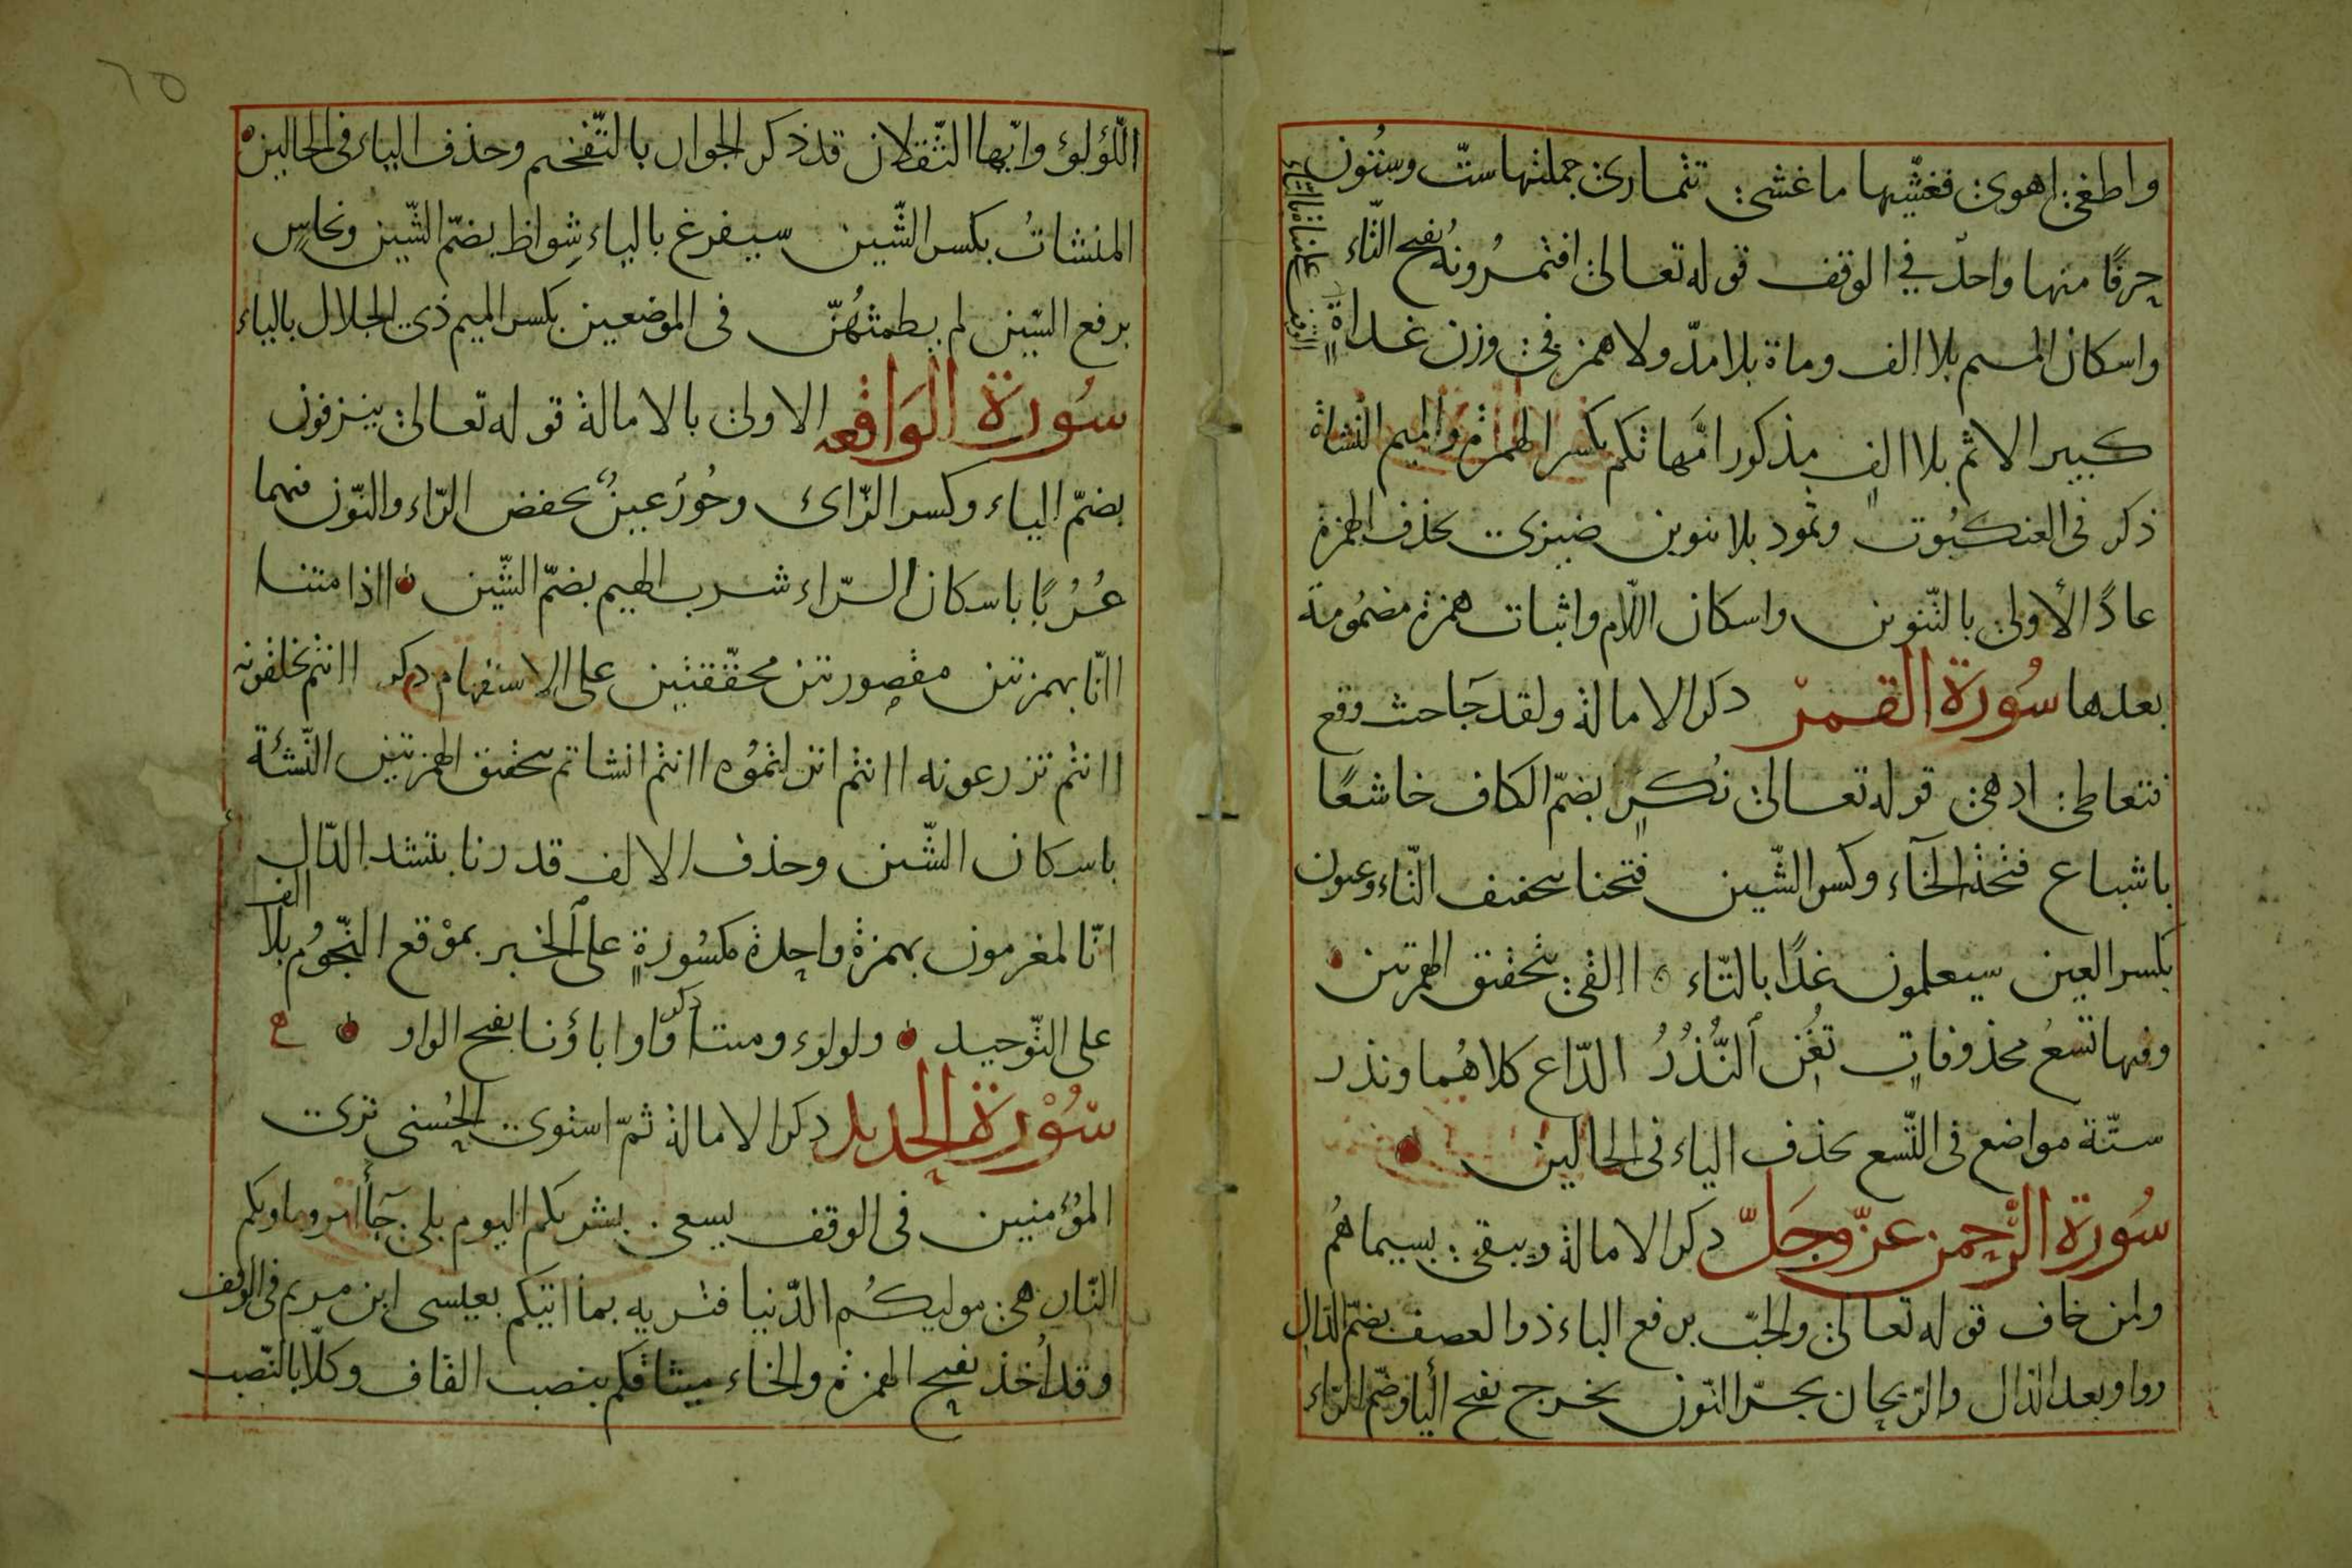 واطغى اهوى فغشّيها ما غشى تتمارى جملتها ستّ وستون
حرفًا منها واحدٌ في الوقف قوله تعالى افتمرُونهُ بفتح التّاء
واسكان الميم بلا الف ومناة بلا مدّ ولا همز في وزن غداة
الوقف على مناة بالتاء
كبير الاثم بلا الفٍ مذكور امّهاتكم بكسر الهمزة والميم النشاة
ذكر فى العنكبُوت وثمود بلا تنوين ضيزى بحذف الهمزة
عادًا الأولى بالتّنوين واسكان اللّام واثبات همزة مضمُومة
بعدها سُورَة القمرْ ذكر الامالة ولقد جَا حيث وقع
فتعاطى ادهى قوله تعالى نُكرٍ بضمّ الكاف خاشعًا
باشباع فتحة الخآء وكسر الشّين ففتحنا بتخفيف التّاء وعيون
بكسر العين سيعلمون غدًا بالتّاء ااُلقى بتحقيق الهمزتين
وفيها تسعُ محذوفاتٍ تُغْنِ ٱلنُّذُرُ الدّاع كلاهُما ونذر
ستّة مواضع فى التّسع بحذف الياء فى الحالين
سُورَة الرّحمن عزّ وجَلّ ذكر الامالة ويبقى بسيماهُم
ولمن خاف قوله تعالى والحبّ برفع الباء ذو العصف بضمّ الذال
وواو بعد الذال والرّيحان بجرّ النّون يخرج بفتح الياء وضمّ الرّاء
اللّؤلؤ وايّها الثّقلان قد ذكر الجوار بالتّفخيم وحذف الياء فى الحالين
المنشاتُ بكسر الشّين سيفرغ بالياء شِواظ بضمّ الشّين ونحاسٍ
برفع السّين لم يطمثهُنّ فى الموضعين بكسر الميم ذى الجلال بالياء
سُورَة الوَاقعه الاولى بالامالة قوله تعالى ينزفون
بضمّ الياء وكسر الزّاى وحُورٌ عينٌ بخفض الرّاء والنّون فيهما
عُرُبًا باسكان الرّاء شرب الهيم بضمّ الشّين ااذا متنا
اانّا بهمزتين مقصورتين محقّقتين على الاستفهام ذكر اانتم تخلقونه
اانتم تزرعونه اانتم انزلتمُوه اانتم انشاتم بتحقيق الهمزتين النّشئة
باسكان الشّين وحذف الالف قدرنا بتشد الدّال
انّا لمغرمون بهمزة واحدة مكسُورةٍ على الخبر بموْقع النّجُوم بلا الف
على التّوحيد ولولوء ومتنا ذكر اَوَاباؤنا بفتح الواو
سُوْرَة الحديد ذكر الامالة ثمّ استوى الحُسنى ترى
المؤمنين فى الوقف يسعى بشريكم اليوم بلى جَآ امر وماويكم
النّار هى موليكُم الدّنيا فتريه بما اتيكم بعيسى ابن مريم فى الوقف
وقد اُخذ بفتح الهمزة والخاء ميثاقكم بنصب القاف وكلّا بالنّصب